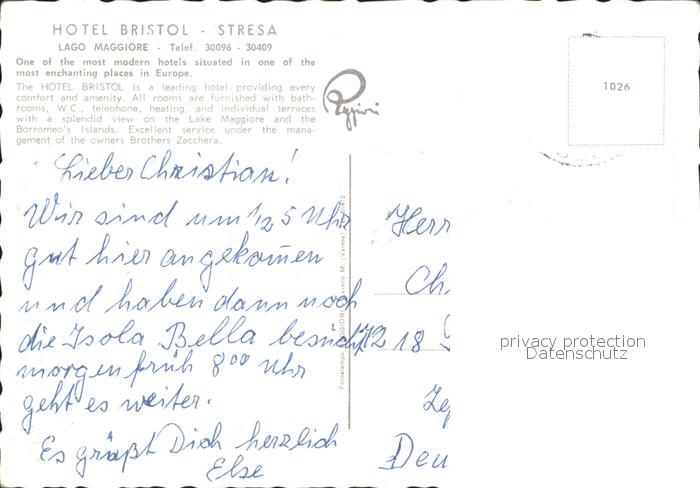 HOTEL BRISTOL - STRESA
LAGO MAGGIORE - Telef. 30096 - 30409
One of the most modern hotels situated in one of the
most enchanting places in Europe.
The HOTEL BRISTOL is a leading hotel providing every
comfort and amenity. All rooms are furnished with bath-
rooms, W.C., telephone, heating, and individual terraces
with a splendid view on the Lake Maggiore and the
Borromeo's Islands. Excellent service under the mana-
gement of the owners Brothers Zacchera.
1026
Lieber Christian!
Wir sind um 1/2 5 Uhr
gut hier angekom̄en
und haben dann noch
die Isola Bella besucht
morgen früh 8⁰⁰ Uhr
geht es weiter.
Es grüßt Dich herzlich
Else
Herr
Ch
18
Deu
privacy protection
Datenschutz